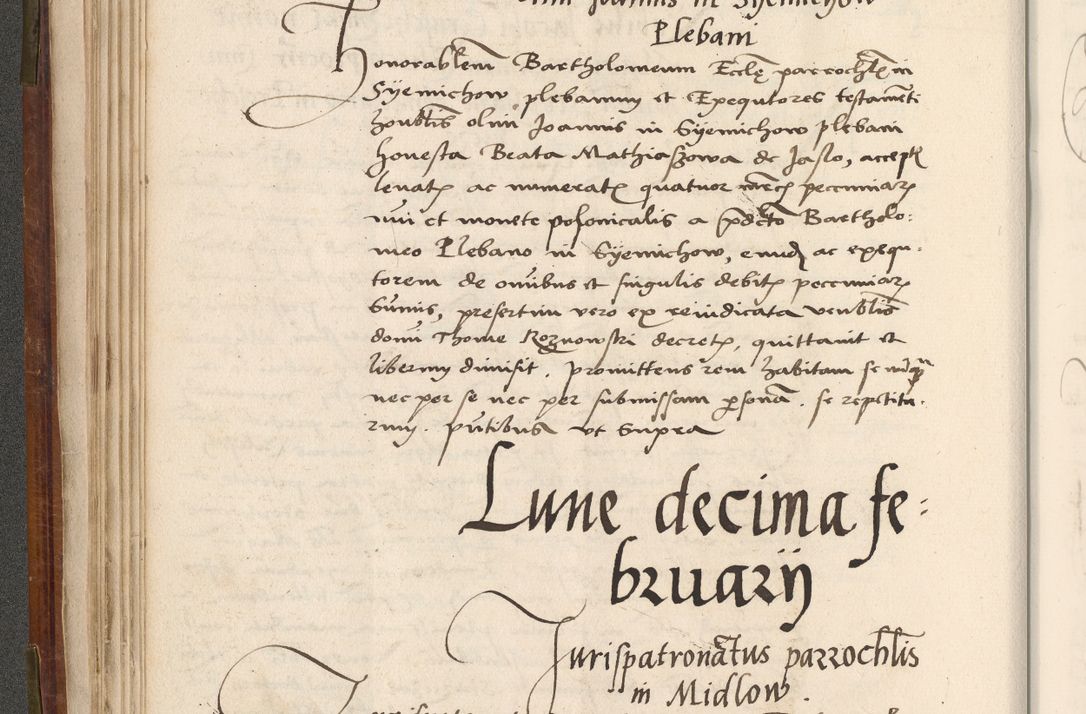 Joannis in Syemichow
Plebani
Honorablem Bartholomeum Eccle parrochlis in
Syemichow plebanum et Exequtores testamenti
honblis olim Joannis in Syemichow plebani
honesta Beata Mathiaszowa de Jaslo, accept
levat ac numerat quatuor pecuniar
nui et monete polonicalis a pdcto Bartholo:
meo Plebano in Syemichow, eund ac exequ:
torem de omibus et singulis debit pecuniar
Sumis, presertim vero ex reiudicata venblis
domi Thome Roznowski decret, quittavit et
liberum dimisit. promittens rem habitam se
nec per se nec per submissam psona. se repetitu:
rum. pntibus ut supra
Lune decima fe:
bruarij
Jurispatronatus parrochlis
in Midlow.